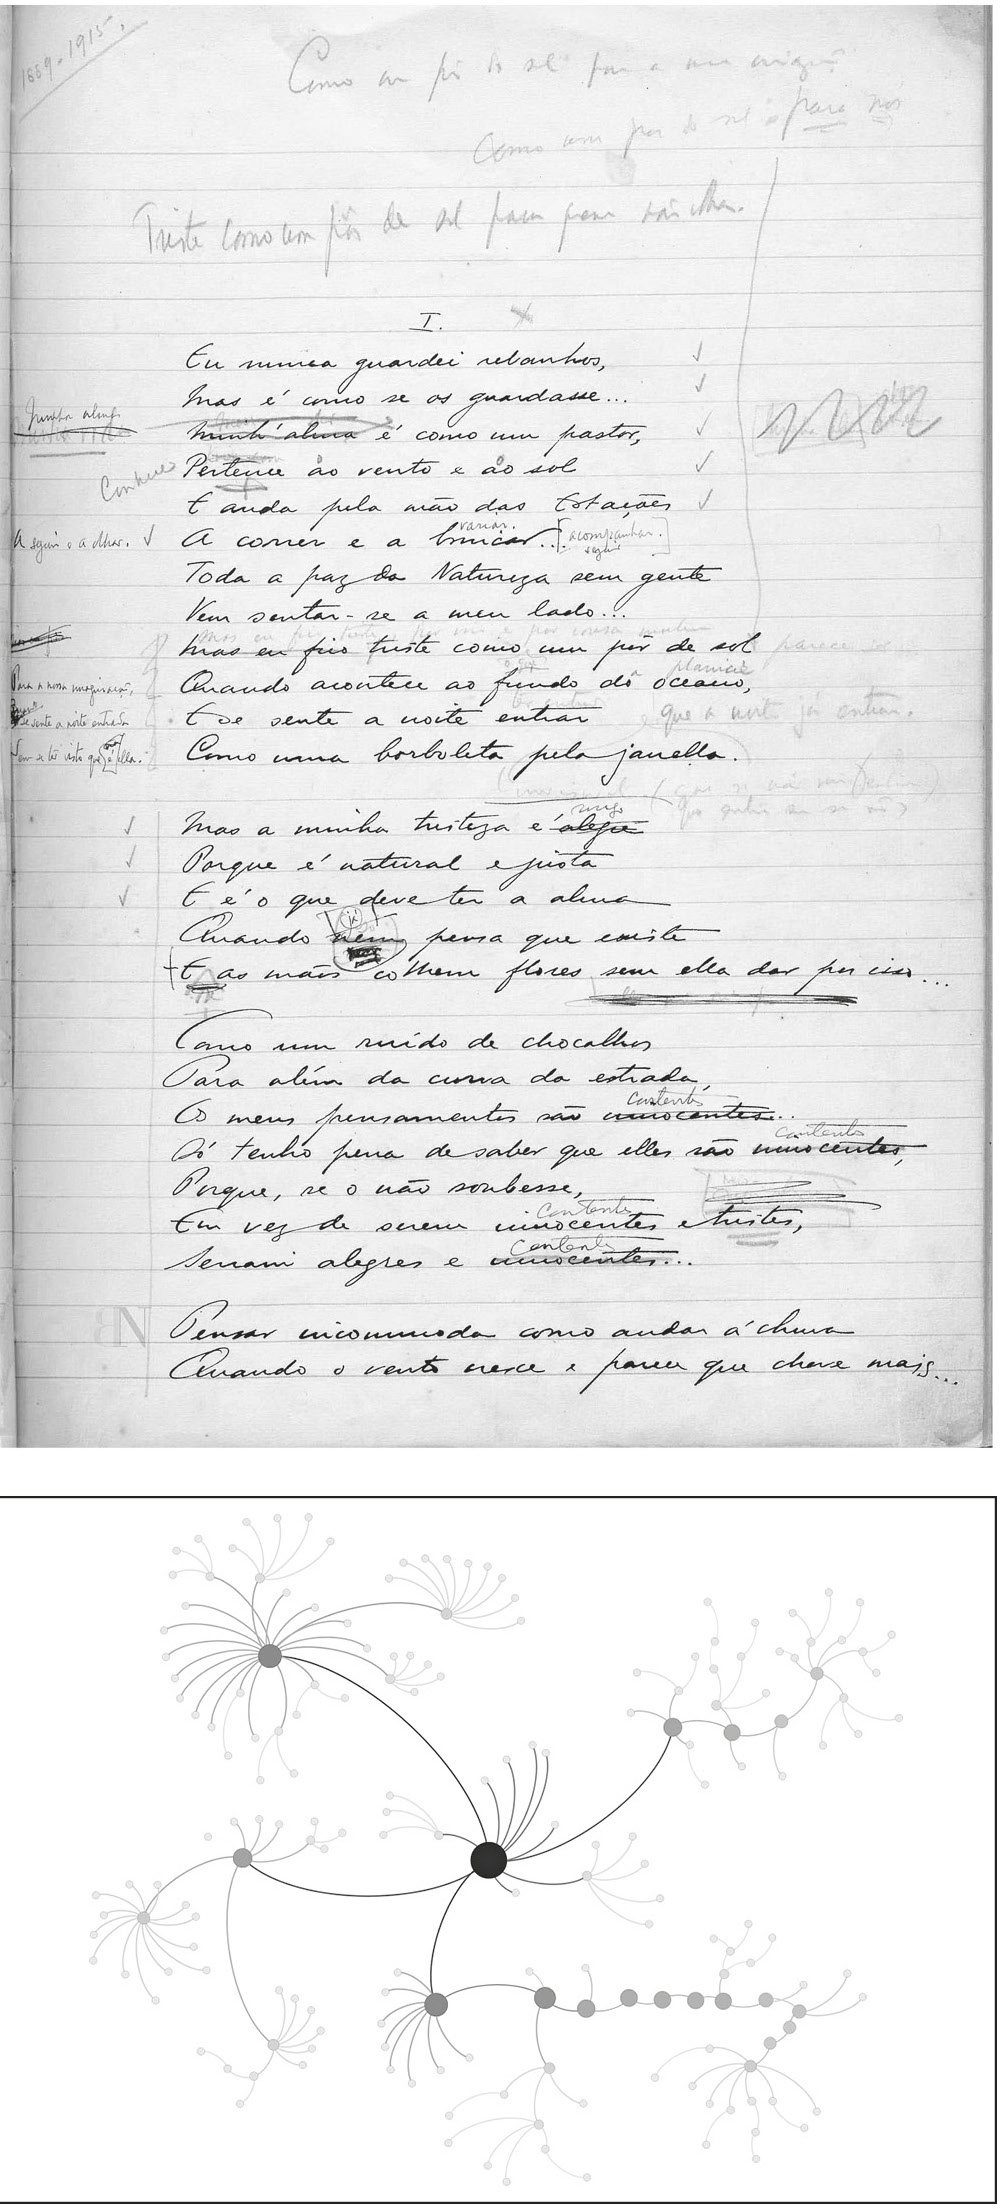 1889-1915.
Como um pôr de sol para a
Como um pôr do sol é para nós
Triste como um pôr de sol para quem
I.
Eu nunca guardei rebanhos,
Mas é como se os guardasse...
minha alma
Minh'alma é como um pastor,
Conhece
Pertence ao vento e ao sol
E anda pela mão das Estações
variar.
A seguir e a olhar. A correr e a brincar... [acompanhar.]
seguir
Toda a paz da Natureza sem gente
Vem sentar-se a meu lado...
Mas eu fico triste como um pôr de sol parece
planicie
Para a nossa imaginação, Quando acontece ao fundo do oceano,
se sente a noite entrada E se sente a noite entrar que a noite já entrou.
Sem se ter visto que é ella. Como uma borboleta pela janella.
Mas a minha tristeza é alegre
Porque é natural e justa
E é o que deve ter a alma
Quando nem pensa que existe
E as mãos colhem flores sem ella dar por isso...
Como um ruido de chocalhos
Para além da curva da estrada,
contentes
Os meus pensamentos são innocentes...
contentes
Só tenho pena de saber que elles são innocentes,
Porque, se o não soubesse,
contentes
Em vez de serem innocentes e tristes,
contentes
Seriam alegres e innocentes...
BN
Pensar incommoda como andar á chuva
Quando o vento cresce e parece que chove mais...